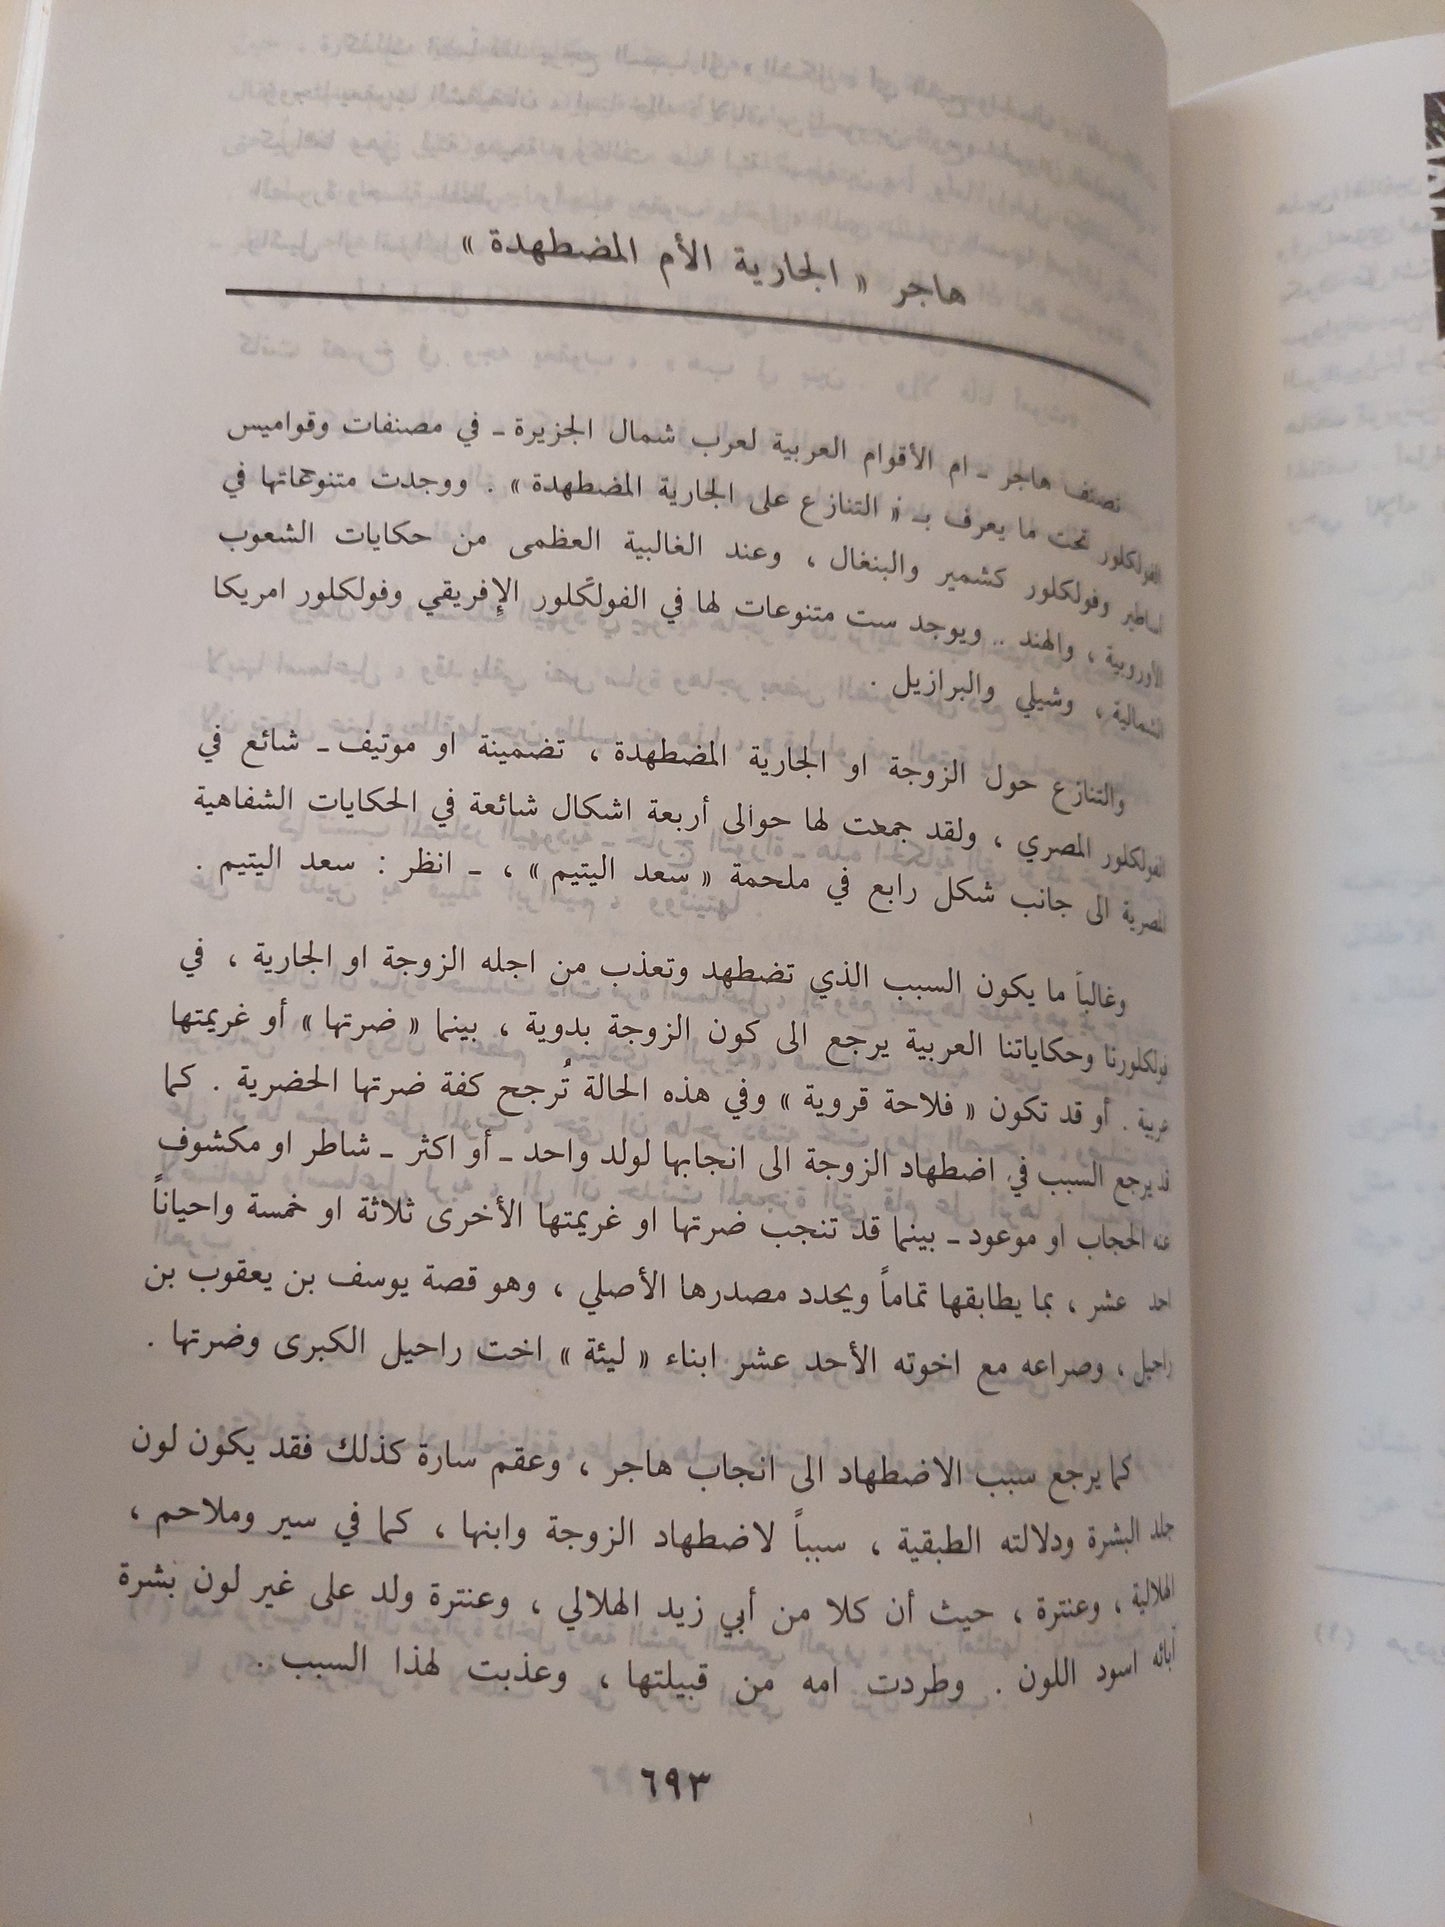 هاجر « الجارية الأم المضطهدة »
تصنف هاجر ـ ام الأقوام العربية لعرب شمال الجزيرة ـ في مصنفات وقواميس
الفولكلور تحت ما يعرف بـ « التنازع على الجارية المضطهدة » . ووجدت متنوعاتها في
اساطير وفولكلور كشمير والبنغال ، وعند الغالبية العظمى من حكايات الشعوب
الأوروبية ، والهند .. ويوجد ست متنوعات لها في الفولكلور الإفريقي وفولكلور امريكا
الشمالية ، وشيلي والبرازيل .
والتنازع حول الزوجة او الجارية المضطهدة ، تضمينة او موتيف ـ شائع في
الفولكلور المصري ، ولقد جمعت لها حوالى أربعة اشكال شائعة في الحكايات الشفاهية
المصرية الى جانب شكل رابع في ملحمة « سعد اليتيم » ، ـ انظر : سعد اليتيم .
وغالباً ما يكون السبب الذي تضطهد وتعذب من اجله الزوجة او الجارية ، في
فولكلورنا وحكاياتنا العربية يرجع الى كون الزوجة بدوية ، بينما « ضرتها » أو غريمتها
عربية . أو قد تكون « فلاحة قروية » وفي هذه الحالة تُرجح كفة ضرتها الحضرية . كما
قد يرجع السبب في اضطهاد الزوجة الى انجابها لولد واحد ـ أو اكثر ـ شاطر او مكشوف
عنه الحجاب او موعود ـ بينما قد تنجب ضرتها او غريمتها الأخرى ثلاثة او خمسة واحياناً
احد عشر ، بما يطابقها تماماً ويحدد مصدرها الأصلي ، وهو قصة يوسف بن يعقوب بن
راحيل ، وصراعه مع اخوته الأحد عشر ابناء « ليئة » اخت راحيل الكبرى وضرتها .
كما يرجع سبب الاضطهاد الى انجاب هاجر ، وعقم سارة كذلك فقد يكون لون
جلد البشرة ودلالته الطبقية ، سبباً لاضطهاد الزوجة وابنها ، كما في سير وملاحم ،
الهلالية ، وعنترة ، حيث أن كلا من أبي زيد الهلالي ، وعنترة ولد على غير لون بشرة
آبائه اسود اللون . وطردت امه من قبيلتها ، وعذبت لهذا السبب .
٦٩٣